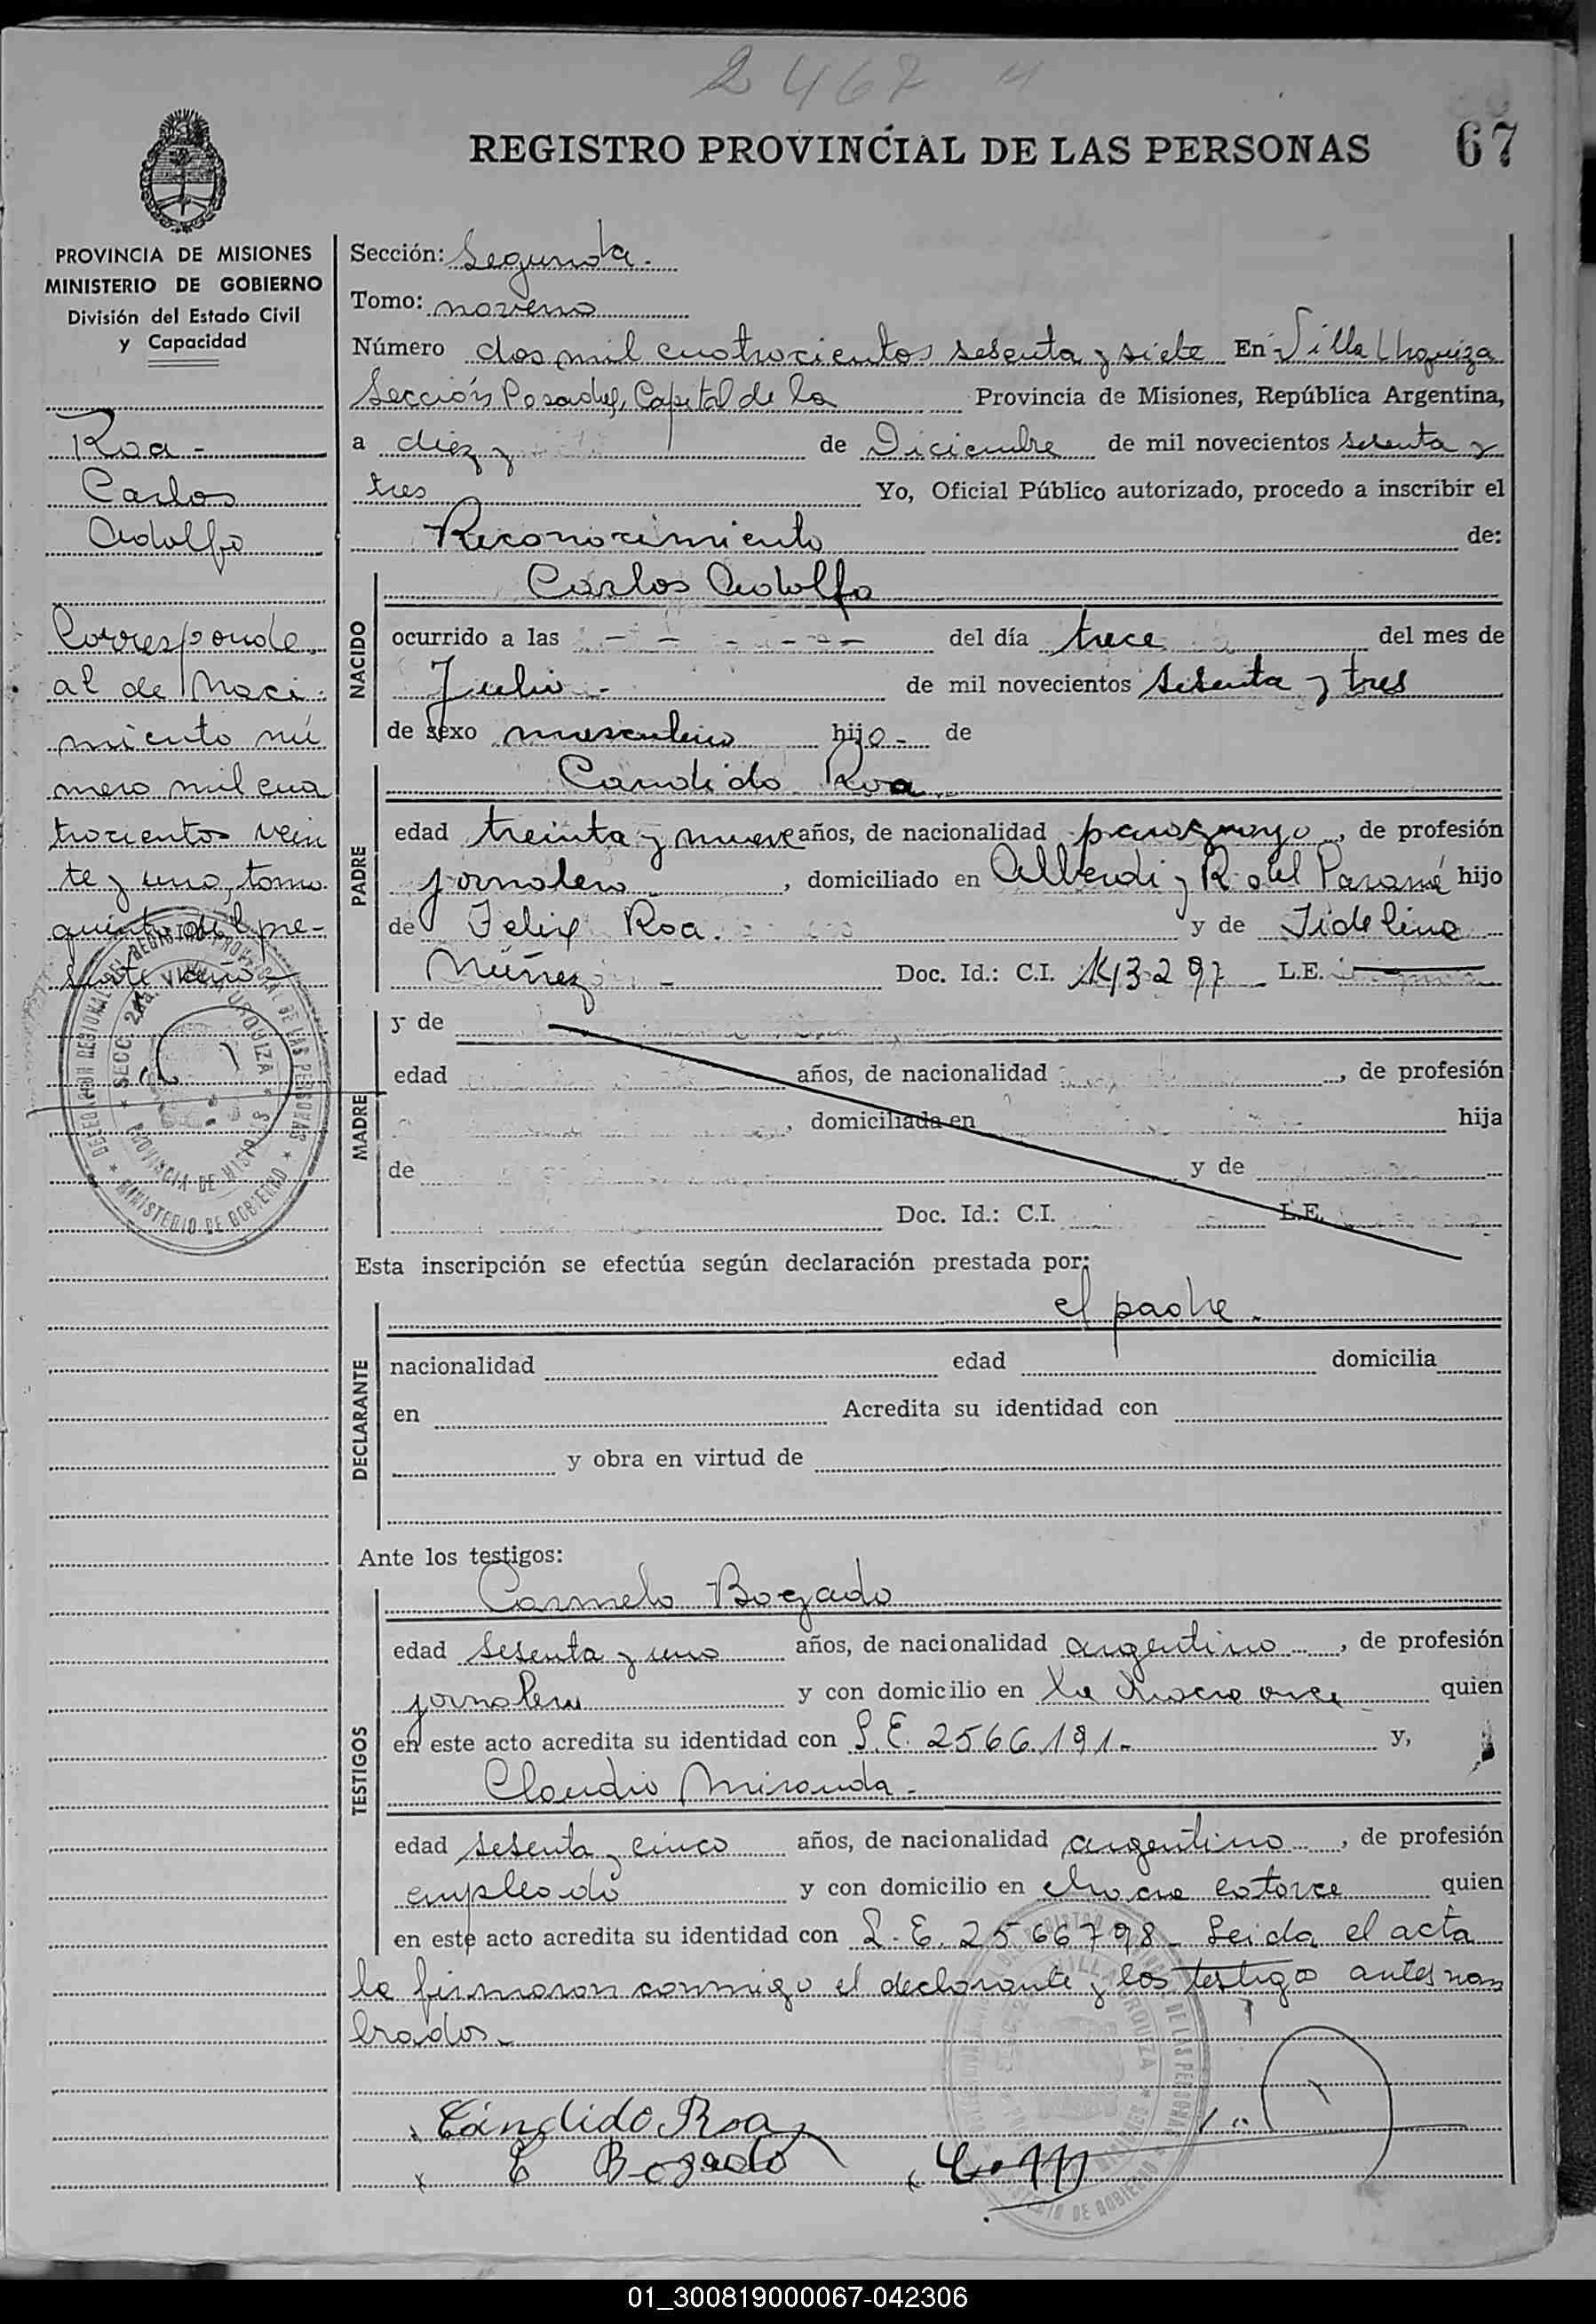 2467
REGISTRO PROVINCIAL DE LAS PERSONAS 67
PROVINCIA DE MISIONES
MINISTERIO DE GOBIERNO
División del Estado Civil
y Capacidad
Roa -
Carlos
Adolfo
Corresponde
al de Naci
miento nú
mero mil cua
trocientos vein
te y uno, tomo
quinto del pre-
sente año -
Sección: Segunda.
Tomo: noveno
Número dos mil cuatrocientos sesenta y siete En Villa Urquiza
Sección Posadas, Capital de la Provincia de Misiones, República Argentina,
a diez y de Diciembre de mil novecientos setenta y
tres Yo, Oficial Público autorizado, procedo a inscribir el
Reconocimiento de:
NACIDO
Carlos Adolfo
ocurrido a las - - - - - del día trece del mes de
Julio - de mil novecientos setenta y tres
de sexo masculino hijo - de
PADRE
Candido Roa
edad treinta y nueve años, de nacionalidad paraguayo, de profesión
jornalero, domiciliado en Alberdi y R. del Paraná hijo
de Felix Roa. y de Fidelina
Núñez - Doc. Id.: C.I. 143297 L.E.
MADRE
y de
edad años, de nacionalidad , de profesión
, domiciliada en hija
de y de
Doc. Id.: C.I. L.E.
Esta inscripción se efectúa según declaración prestada por:
el padre.
DECLARANTE
nacionalidad edad domicilia
en Acredita su identidad con
y obra en virtud de
Ante los testigos:
TESTIGOS
Carmelo Bogado
edad sesenta y uno años, de nacionalidad argentino, de profesión
jornalero y con domicilio en chacra once quien
en este acto acredita su identidad con L.E. 2566.191- y,
Claudio Miranda -
edad sesenta y cinco años, de nacionalidad argentino, de profesión
empleado y con domicilio en chacra catorce quien
en este acto acredita su identidad con L.E. 2566798- Leida el acta
la firmaron conmigo el declarante y los testigos antes nom
brados.-
Cándido Roa
C Bogado
C. M
01_300819000067-042306